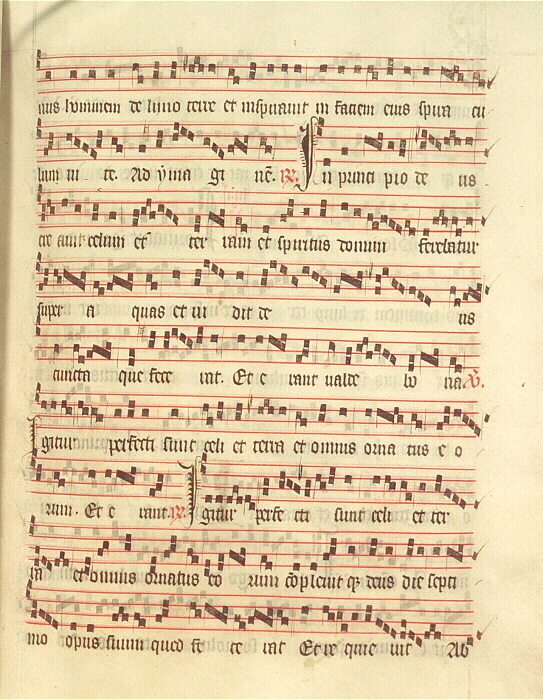 nus hominem de limo terre et inspirauit in faciem eius spira cu
lum ui te. Ad yma gi nē. R. In princi pio de us
cre auit celum et ter ram et spiritus domini ferebatur
super a quas et ui dit de us
cuncta que fece rat. Et e rant ualde bo na V.
Igitur perfecti sunt celi et terra et omnis orna tus e o
rum. Et e rant. R. Igitur perfe cti sunt celi et ter
ra et omnis ornatus eo rum cōpleuit qz deus die septi
mo opus suum quod fe ce rat Et re quie uit Ab